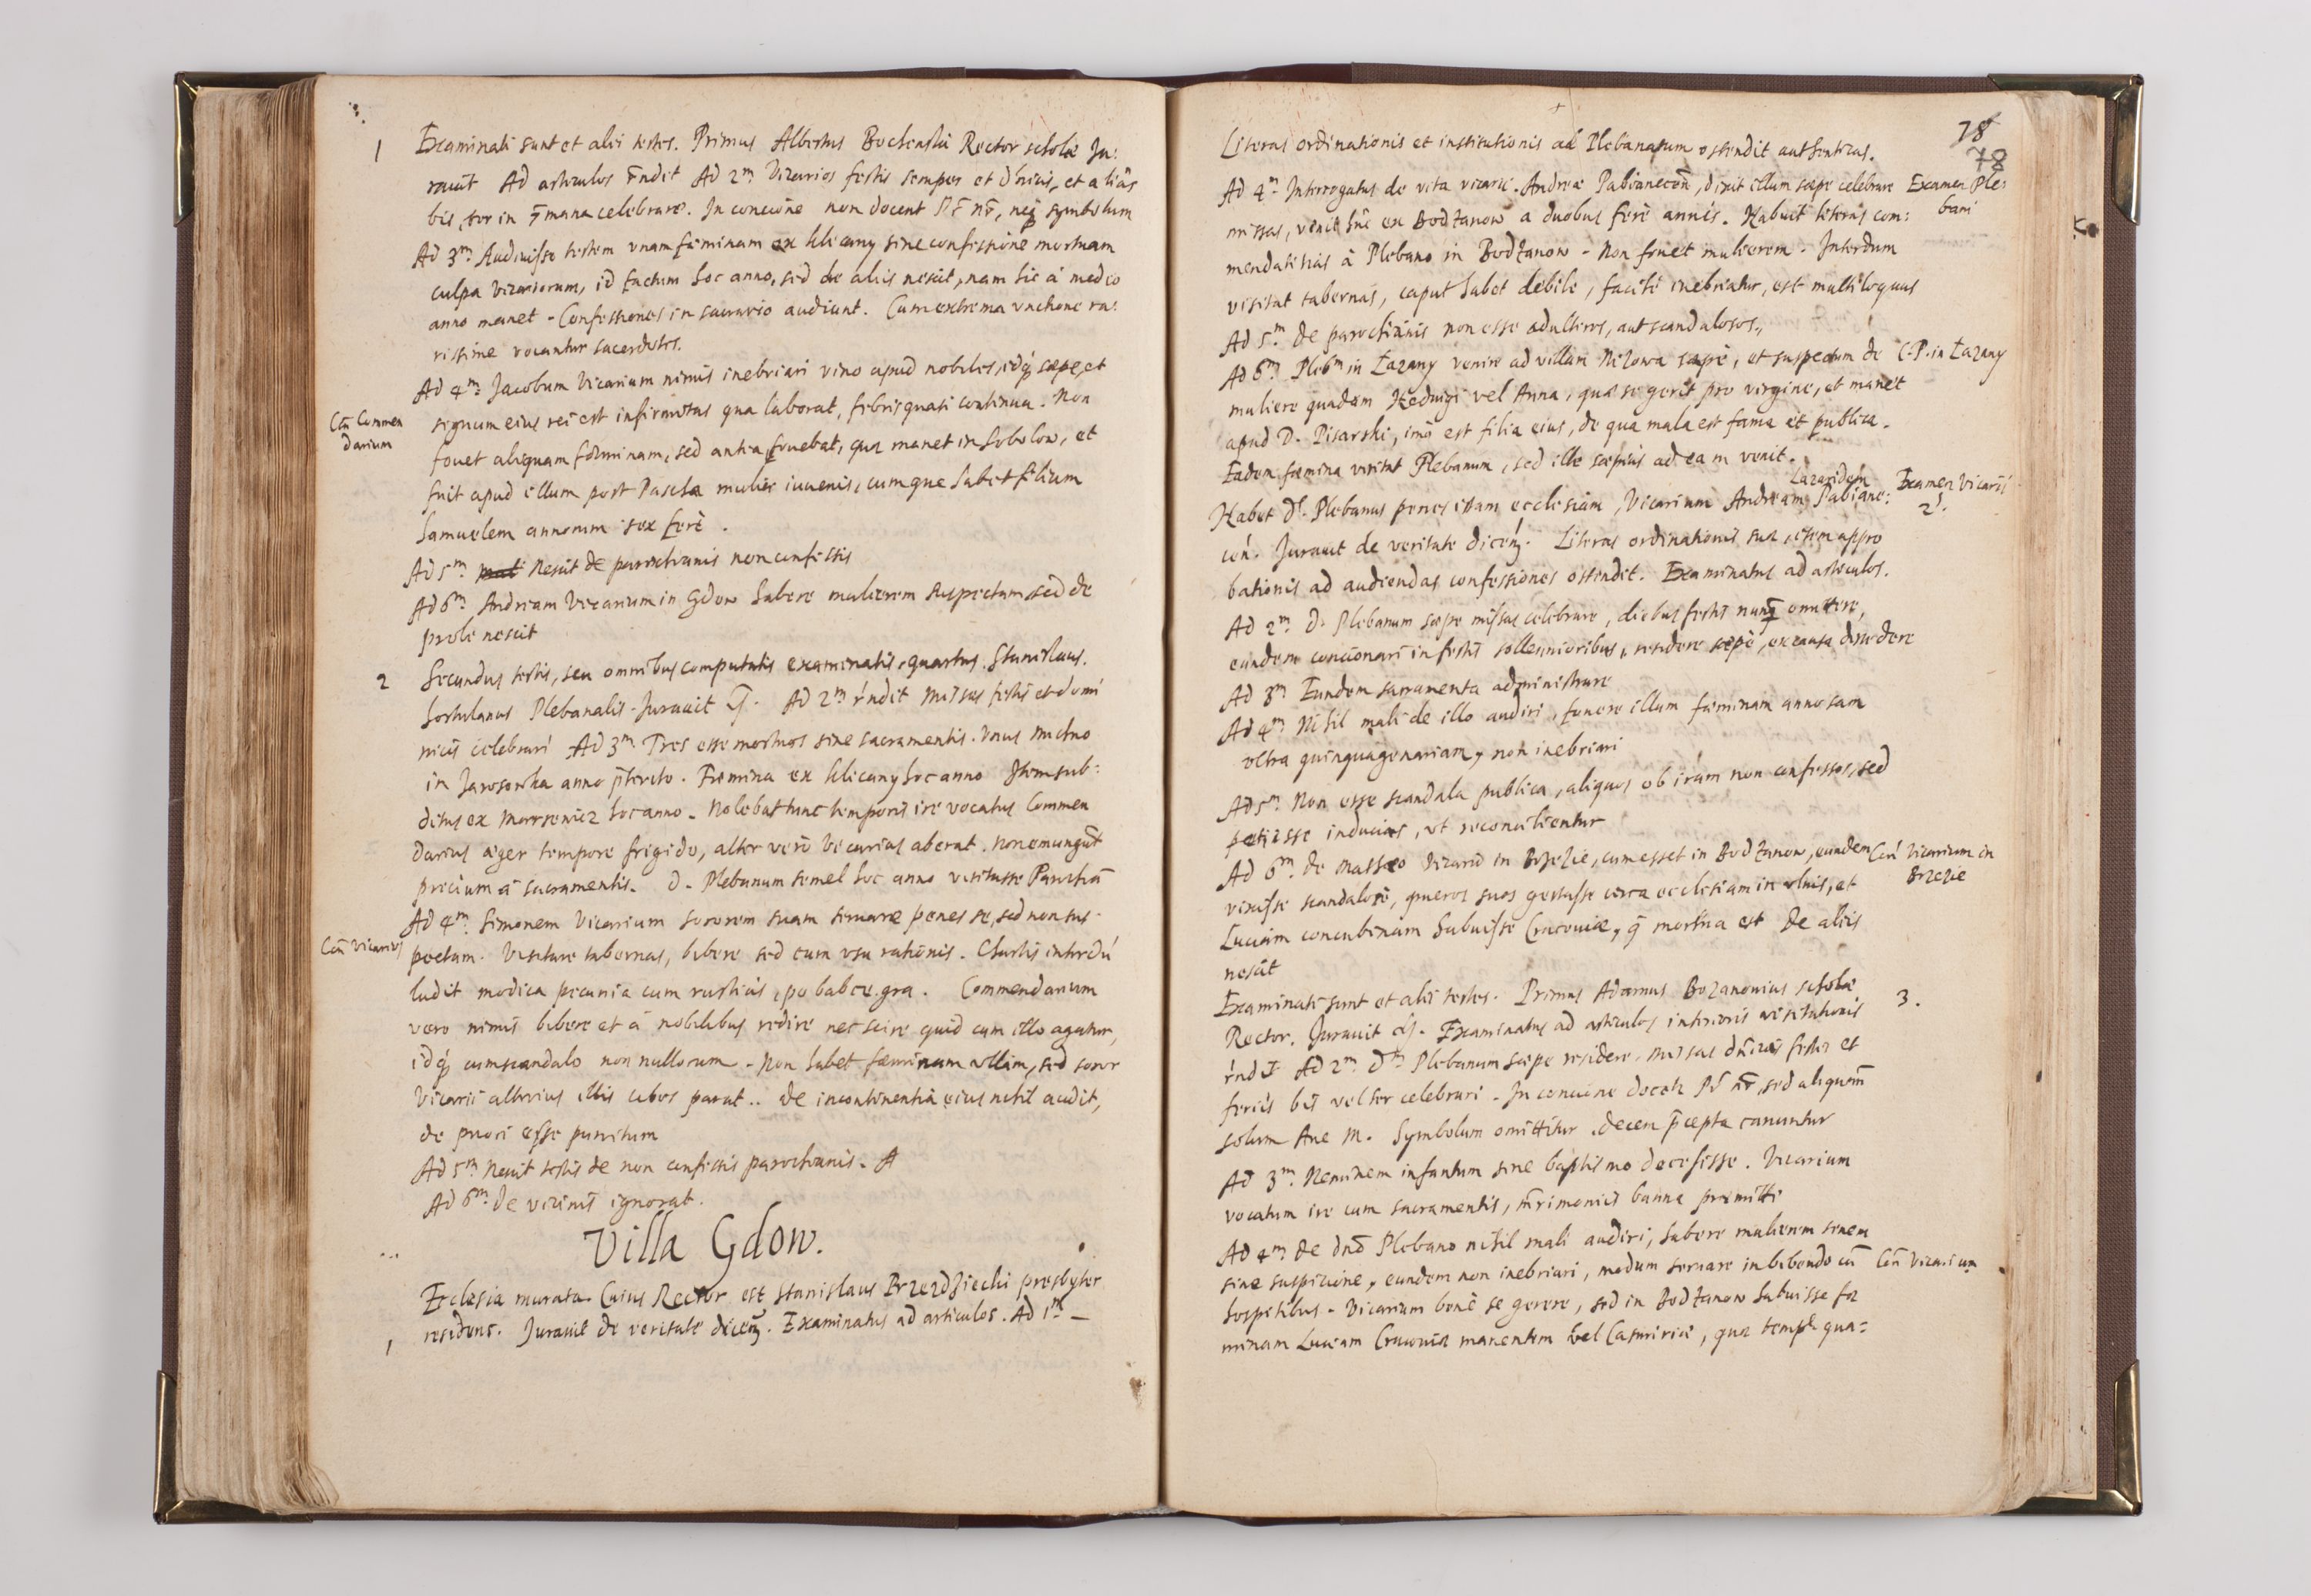 1 Examinati sunt et alii testes. Primus Albertus Bochenski Rector scholæ Ju:
rauit Ad articulos r̃ndit Ad 2m Vicarios festis semper et d'nicis, et aliàs
bis, ter in 7mana celebrare. In concione non docent Pr̃ nr̃, neq symbolum
Ad 3m Audiuisse testem vnam fæminam ex klicany sine confessione mortuam
culpa vicariorum, id factum hoc anno, sed de aliis nescit, nam hic à medio
anno manet - Confessiones in sacrario audiunt. Cum extrema vnctione ra:
rissime vocantur sacerdotes.
Ad 4m Jacobum Vicarium nimis inebriari vino apud nobiles, idq sæpe, et
Con̄ Commen
darium
signum eius rei est infirmitas qua laborat, febris quasi continua. Non
fouet aliquam fœminam, sed antea fouebat, quæ manet in Sobolow, et
fuit apud illum post Pascha mulier iuuenis, cumque habet filium
Samuelem annorum sex ferè.
Ad 5m Nescit de parochianis non confessis
Ad 6m Andream Vicarium in Gdow habere mulierem suspectam sed de
prole nescit
2 Secundus testis, seu omnibus computatis examinatis, quartus. Stanislaus.
hortulanus Plebanalis. Jurauit Ad 2m r̃ndit missas festis et domi
nicis celebrari Ad 3m Tres esse mortuos sine sacramentis. Vnus
in Jarosowka anno p̃terito. Fœmina ex klicany hoc anno Item sub:
ditus ex hoc anno. Nolebat tunc temporis ire vocatus Commen
darius æger tempore frigido, alter verò Vicarius aberat. non emungūt
precium à sacramentis. D. Plebanum semel hoc anno visitasse Parochiā
Ad 4m Simonem Vicarium sororem suam seruare penes se, sed non sus-
Con̄ Vicarios
pectam. Visitare tabernas, bibere sed cum vsu rationis. Chartis interdū
ludit modica pecunia cum rusticis, po babce gra. Commendarium
vero nimis bibere et à nobilibus redire nec scire quid cum illo agatur,
idq cum scandalo non nullorum. Non habet fœminam vllam, sed soror
Vicarii alterius illis cibos parat.. De incontinentia eius nihil audit,
de priori esse punitum
Ad 5m Nescit testis de non confessis parochianis.
Ad 6m De vicinis ignorat.
Villa Gdow.
Ecclesia murata. Cuius Rector est Stanislaus Brzezdziecki presbyter
1 residens. Jurauit de veritate dicen. Examinatus ad articulos. Ad 1m —
78
78
Literas ordinationis et institutionis ad Plebanatum ostendit authenticas.
Ad 4m Interrogatus de vita vicarii. Andreæ Pabianecen̄, dixit illum sæpe celebrare
Examen Ple:
bani
missas, venit huc ex Bodzanow a duobus ferè annis. Habuit literas com:
mendatitias à Plebano in Bodzanow - Non fouet mulierem. Interdum
visitat tabernas, caput habet debile, facile inebriatur, est multiloquus
Ad 5m De parochianis non esse adulteros, aut scandalosos,
Ad 6m Plebm in Lazany venire ad villam Nizowa sæpè, et suspectum de
C. P. in Lazany
muliere quadam Heduigi vel Anna, quæ se gerit pro virgine, et manet
apud D. Pisarski, imò est filia eius, de qua mala est fama et publica.
Eadem fæmina visitat Plebanum, sed ille sæpius ad eam venit.
Habet D. Plebanus penes istam ecclesiam, Vicarium Andream Pabiane:
Examen Vicarii
2.
cen̄. Jurauit de veritate dicen. Literas ordinationis suæ, item appro
bationis ad audiendas confessiones ostendit. Examinatus ad articulos.
Ad 2m D. Plebanum sæpe missas celebrare, diebus festis nunq omittere,
eundem concionari in festis sollennioribus, residere sæpè, ex causa discedere
Ad 3m Eundem sacramenta administrare
Ad 4m Nihil mali de illo audiri, fouere illum fæminam annosam
vltra quinquagenariam, non inebriari
Ad 5m Non esse scandala publica, aliquos ob iram non confessos, sed
petiisse inducias, vt reconcilientur
Ad 6m De Matthæo Vicario in Brzezie, cum esset in Bodzanow, eundem
Con̄ Vicarium in
Brzezie
vixisse scandalosè, pueros suos gestasse circa ecclesiam in vlnis, et
Luciam concubinam habuisse Cracouiæ, q mortua est De aliis
nescit
Examinati sunt et alii testes. Primus Adamus Bozanouius scholæ
3.
Rector. Jurauit Examinatus ad articulos interioris visitationis
r̃ndit Ad 2m Dm Plebanum sæpe residere. Missas dn̄icis festis et
feriis bis vel ter celebrari. In concione docetur Pr̃ nr̃, sed aliquan̄
solum Aue M. Symbolum omittitur, decem p̄cepta canuntur
Ad 3m Neminem infantum sine baptismo decessisse. Vicarium
vocatum ire cum sacramentis, m̄rimoniis banna premitti
Ad 4m De dn̄o Plebano nihil mali audiri, habere mulierem senem
sine suspicione, eundem non inebriari, modum seruare in bibendo cū
Con̄ Vicarium
hospitibus. Vicarium bonè se gerere, sed in Bodzanow habuisse fæ
minam Luciam Cracouiæ manentem vel Casimiriæ, quæ temple qua: